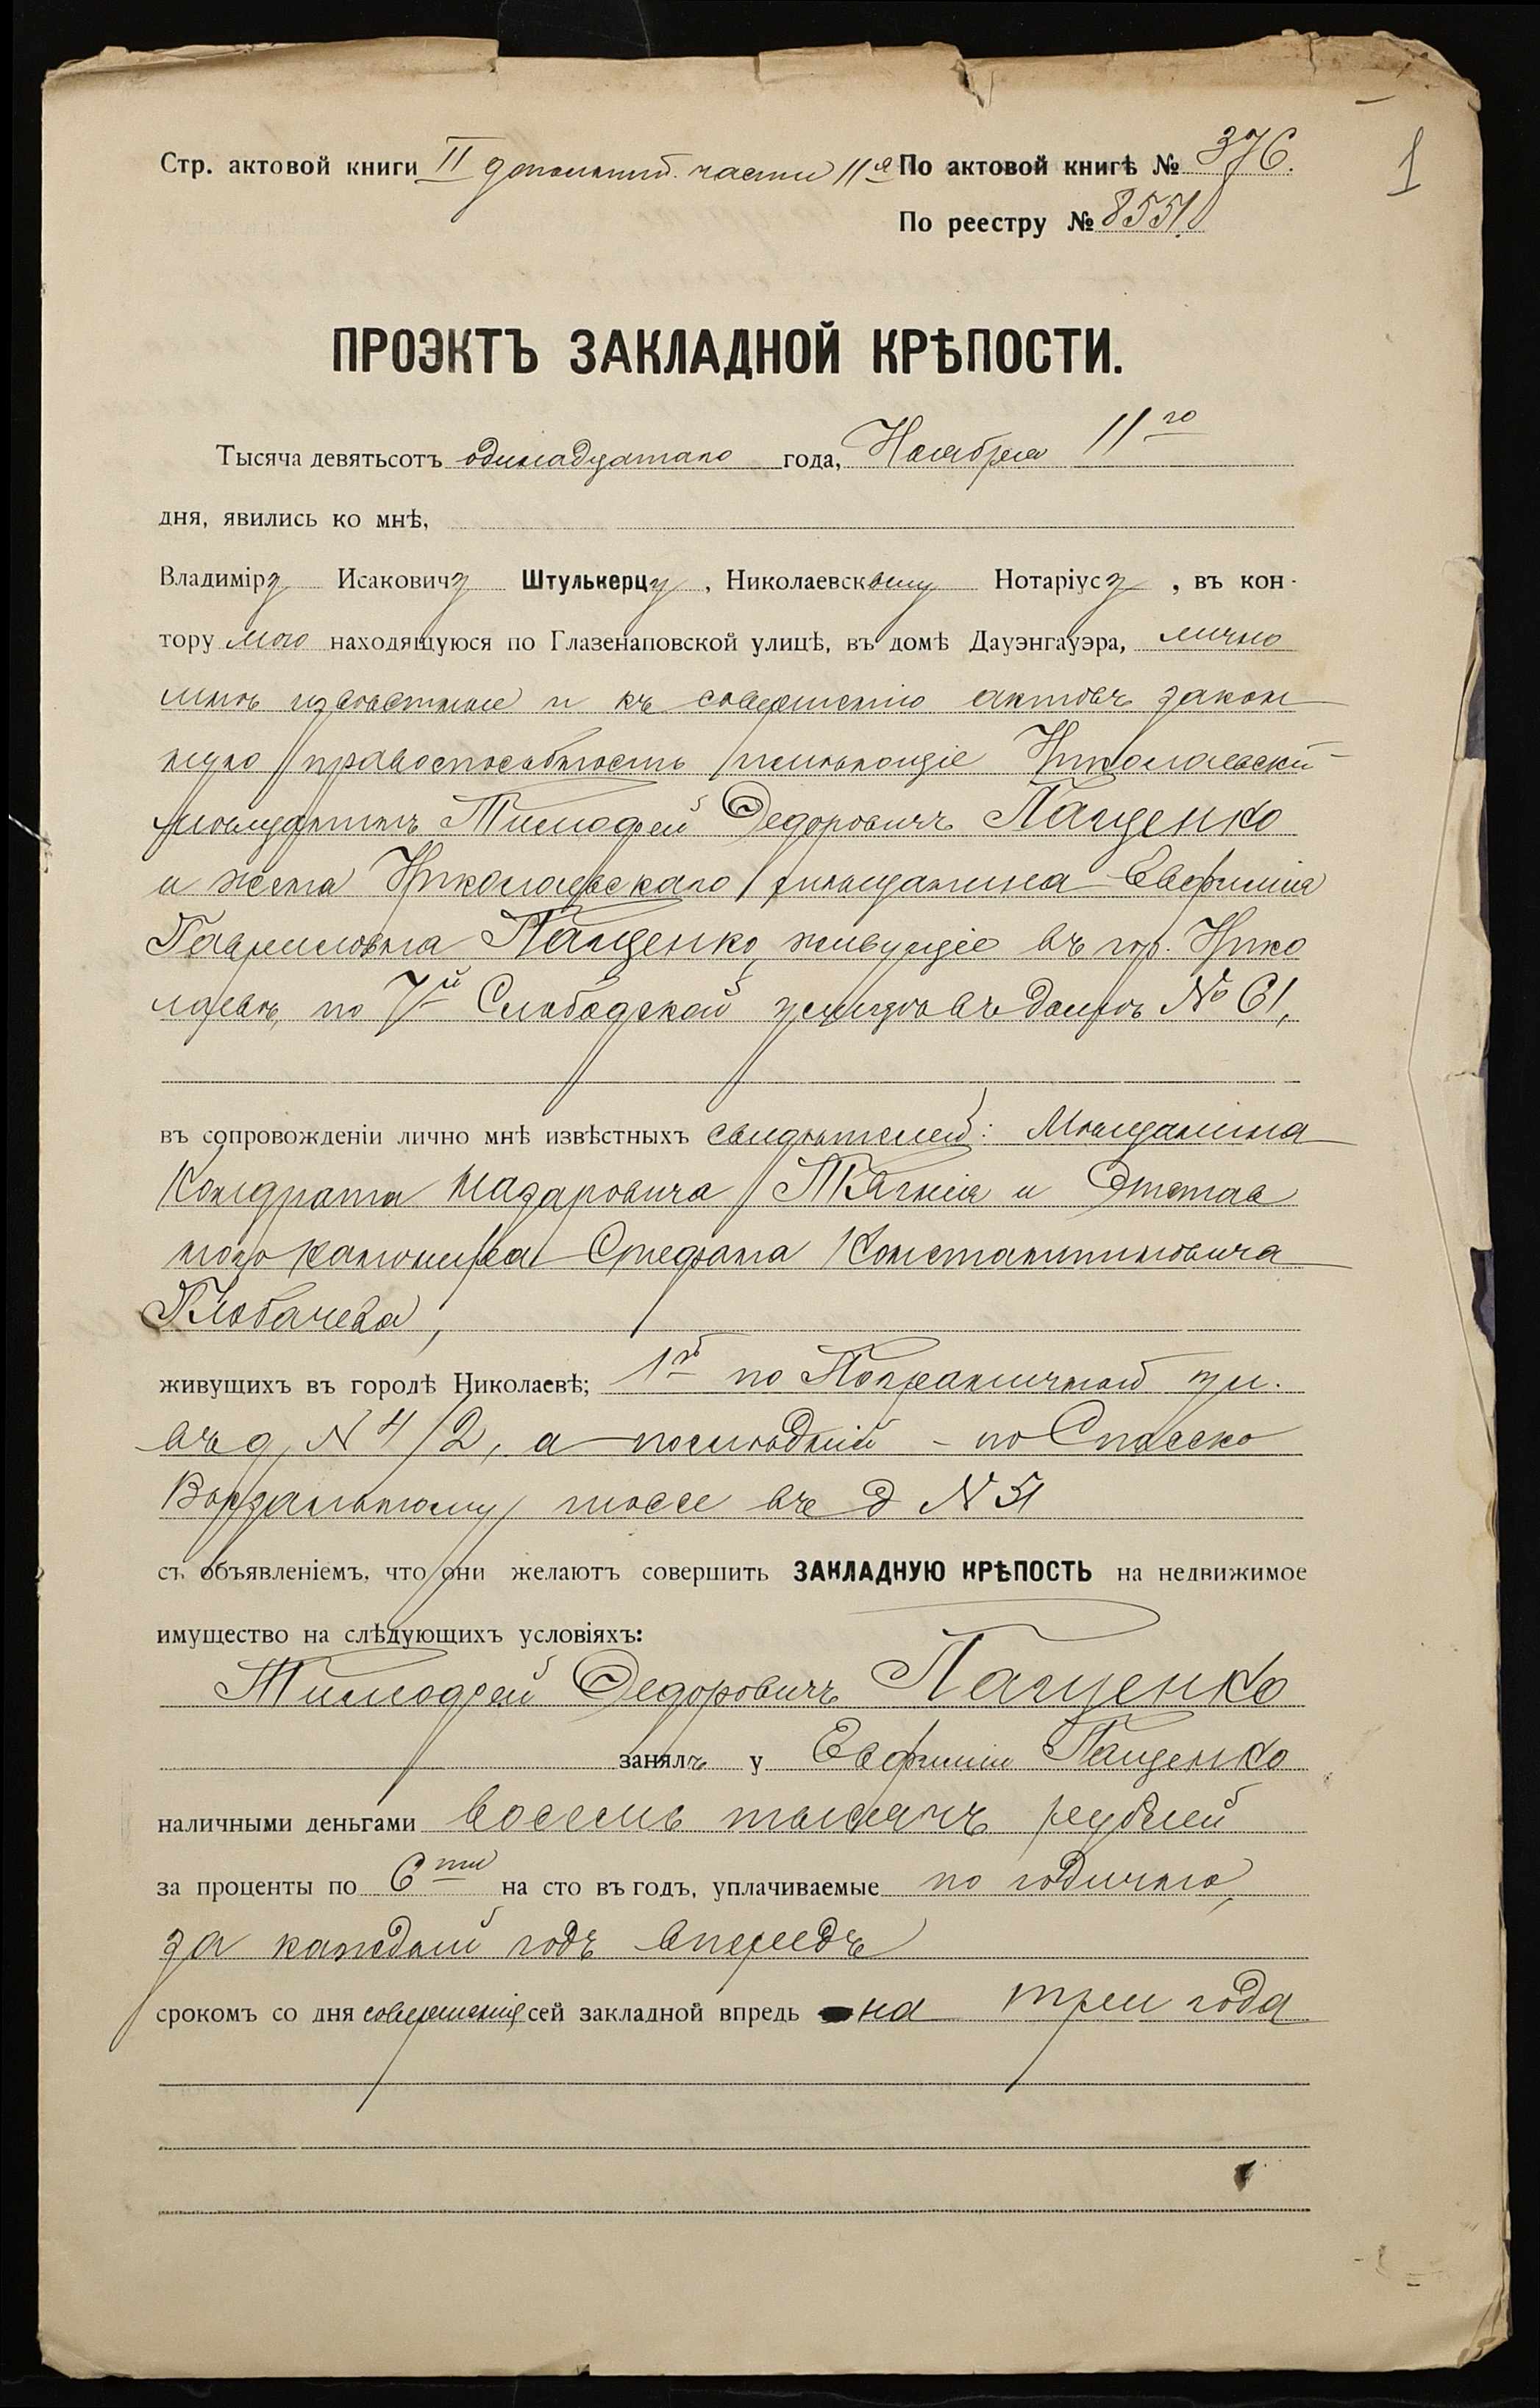 Стр. актовой книги II дополнит. части 11я По актовой книгѣ № 376.
1
По реестру № 8551
ПРОЭКТЪ ЗАКЛАДНОЙ КРѢПОСТИ.
Тысяча девятьсотъ одинадцатаго года, Ноября 11го
дня, явились ко мнѣ,
Владимірꙋ Исаковичꙋ Штулькерцꙋ, Николаевскому Нотаріусꙋ, въ кон-
тору мою находящуюся по Глазенаповской улицѣ, въ домѣ Дауэнгауэра, лично
мнѣ извѣстные и къ совершенію актовъ закон
ную правоспособность имѣющіе Николаевскій
мѣщанинъ Тимофей Федоровичъ Пащенко
и жена Николаевскаго мѣщанина Евфимія
Гавриловна Пащенко, живущіе въ гор. Нико
лаевѣ, по 7й Слободской улицѣ въ домѣ № 61,
въ сопровожденіи лично мнѣ извѣстныхъ свидѣтелей: Мѣщанина
Кондрата Назаровича Тягнія и Отстав
ного канонира Стефана Константиновича
Клобачева,
живущихъ въ городѣ Николаевѣ; 1й по Пограничной ул.
въ д. N 4/2, а послѣдній - по Спасско
Вокзальному шоссе въ д N 51
съ объявленіемъ, что они желаютъ совершить ЗАКЛАДНУЮ КРѢПОСТЬ на недвижимое
имущество на слѣдующихъ условіяхъ:
Тимофей Федоровичъ Пащенко
занялъ у Евфиміи Пащенко
наличными деньгами восемь тысячъ рублей
за проценты по 6ти на сто въ годъ, уплачиваемые по годично,
за каждый годъ впередъ
срокомъ со дня совершенія сей закладной впредь на три года